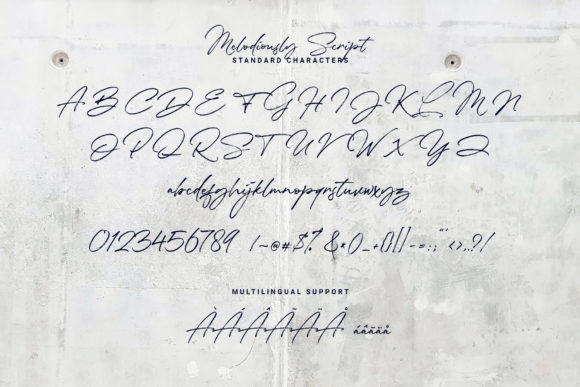 Melodiously Script
STANDARD CHARACTERS
A B C D E F G H I J K L M N
O P Q R S T U V W X Y Z
abcdefghijklmnopqrstuvwxyz
0123456789 !~@#$% &*()_+{}[]-=:;"'<>,.?/
MULTILINGUAL SUPPORT
ÀÁÂÃÄÅ áâãäå